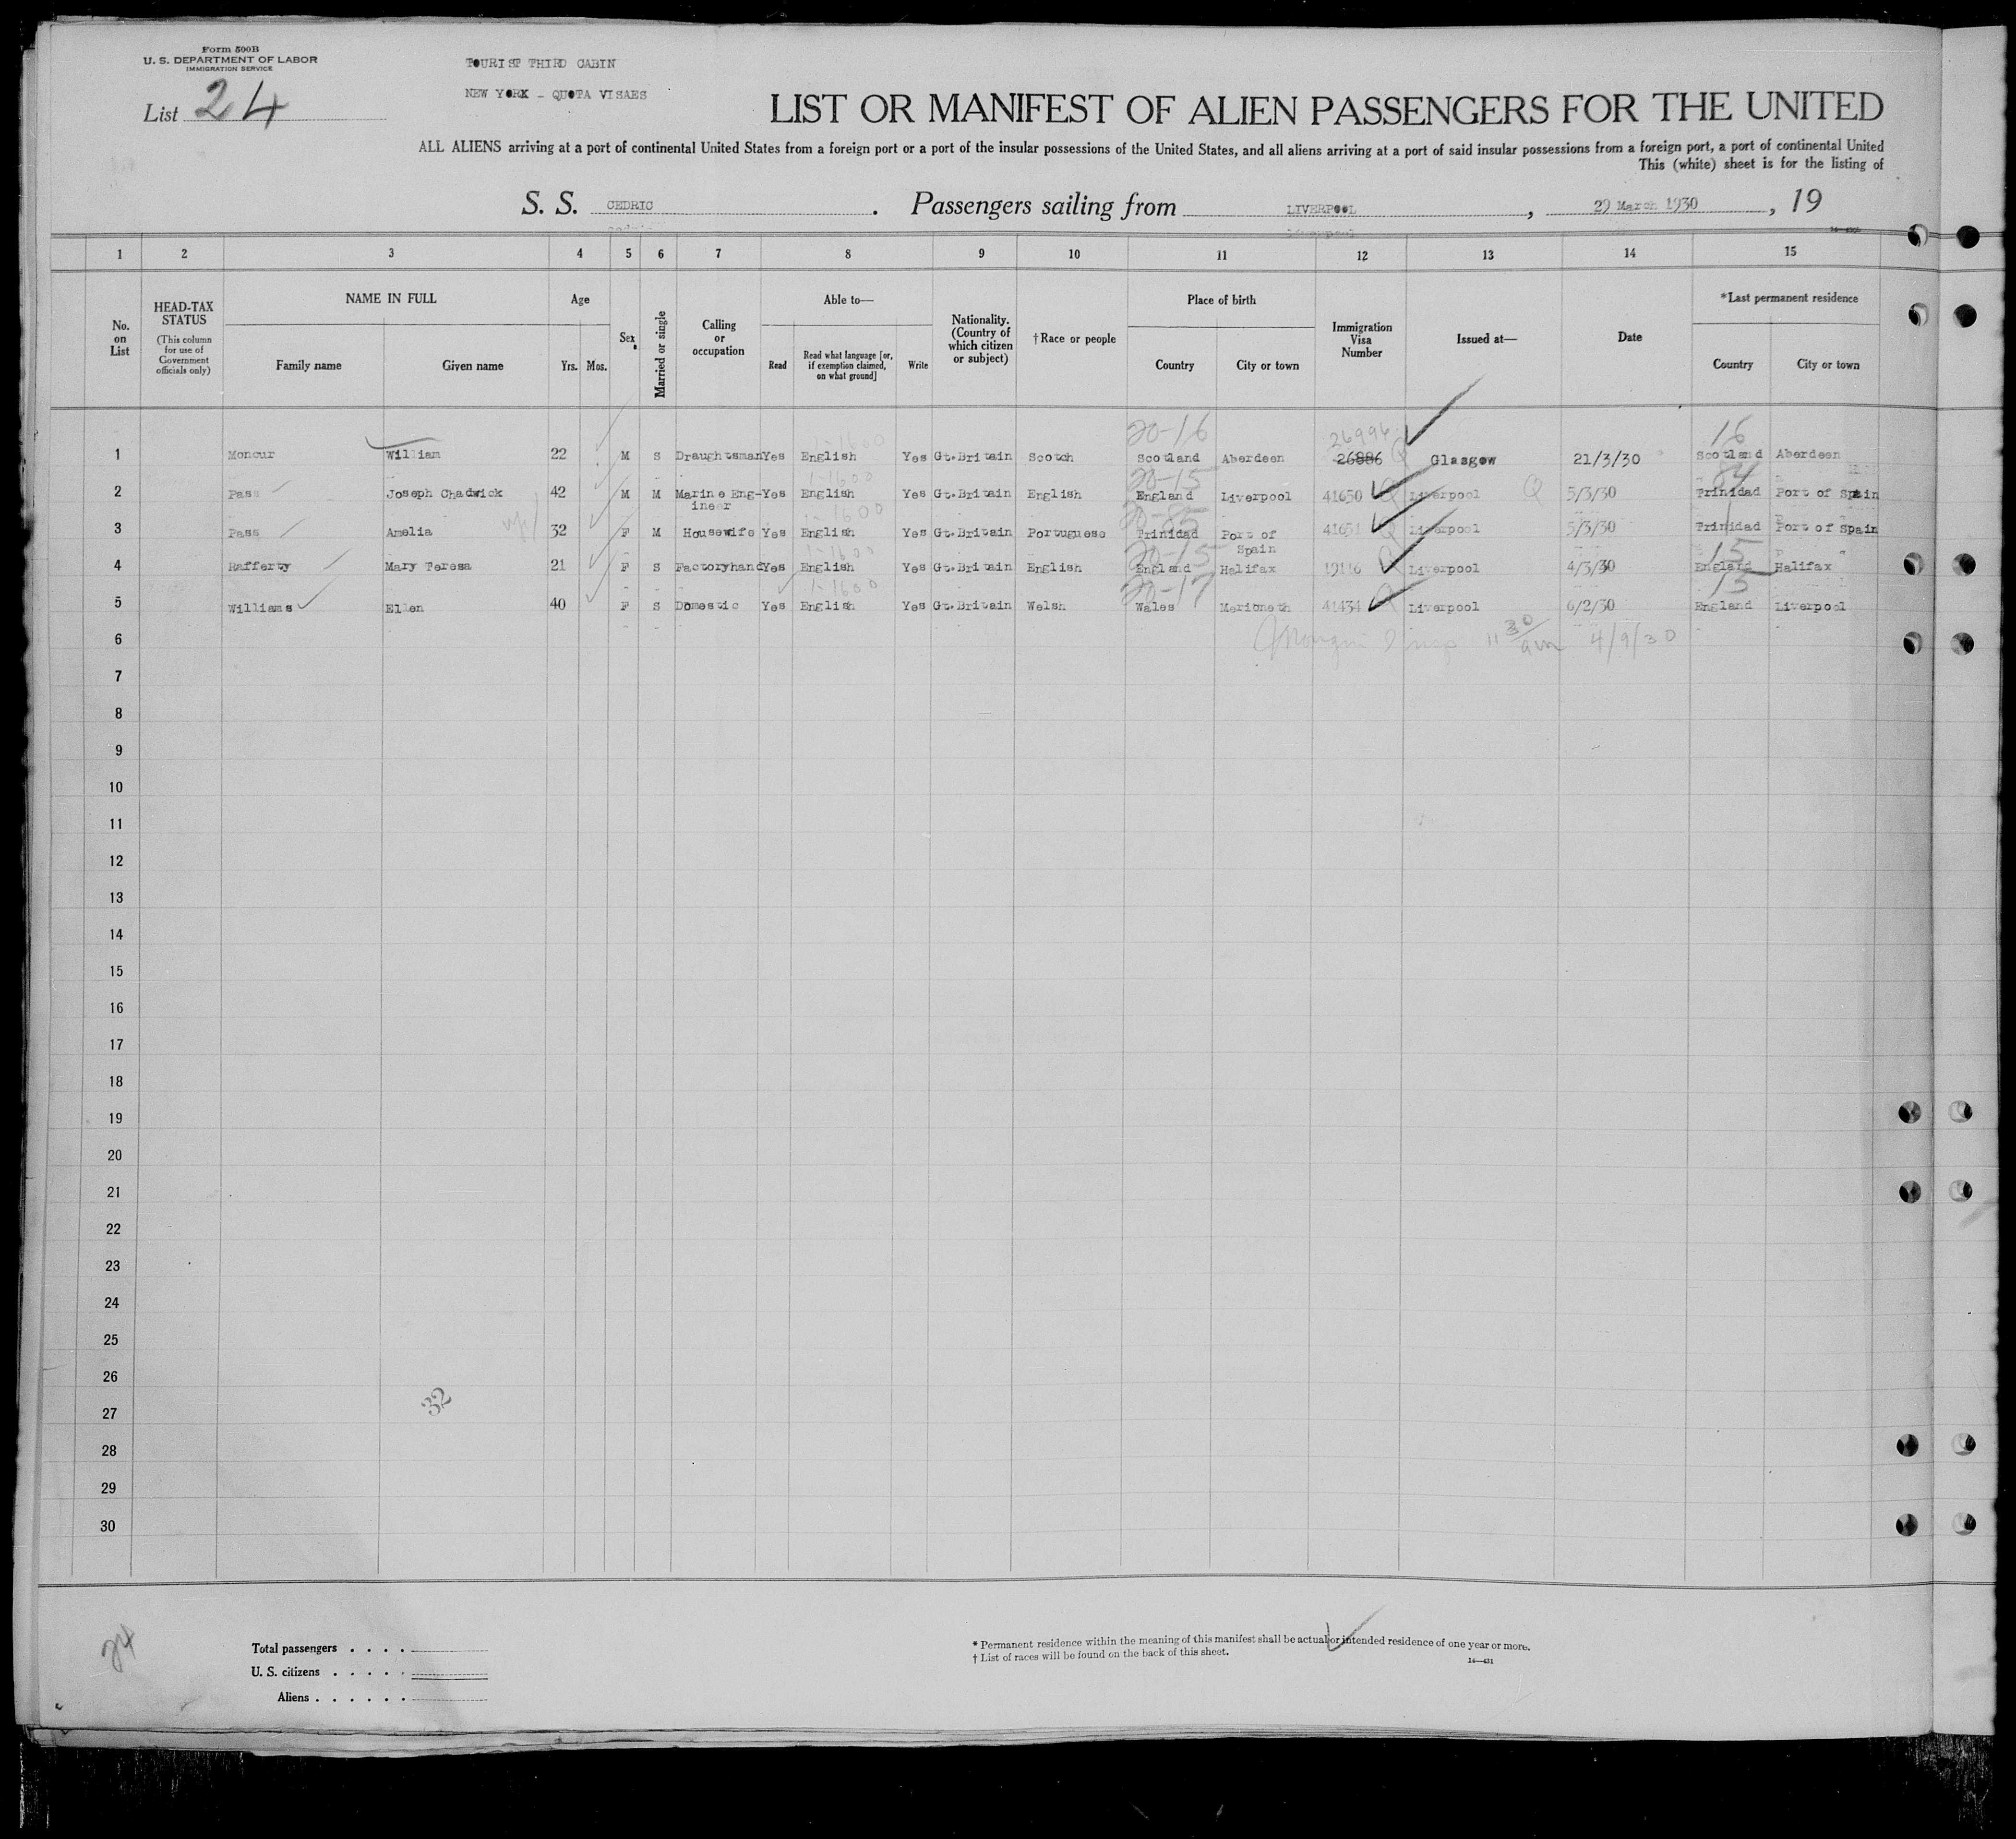 Form 500B
U. S. DEPARTMENT OF LABOR
IMMIGRATION SERVICE
List 24
TOURIST THIRD CABIN
NEW YORK - QUOTA VISAES
LIST OR MANIFEST OF ALIEN PASSENGERS FOR THE UNITED
ALL ALIENS arriving at a port of continental United States from a foreign port or a port of the insular possessions of the United States, and all aliens arriving at a port of said insular possessions from a foreign port, a port of continental United
This (white) sheet is for the listing of
S. S. CEDRIC . Passengers sailing from LIVERPOOL , 29 March 1930 , 19
1 2 3 4 5 6 7 8 9 10 11 12 13 14 15
No. on List
HEAD-TAX STATUS
(This column for use of Government officials only)
NAME IN FULL
Family name Given name
Age
Yrs. Mos.
Sex
Married or single
Calling or occupation
Able to—
Read
Read what language [or, if exemption claimed, on what ground]
Write
Nationality. (Country of which citizen or subject)
†Race or people
Place of birth
Country City or town
Immigration Visa Number
Issued at—
Date
*Last permanent residence
Country City or town
20-16 26994 16
1 Moncur William 22 M S Draughtsman Yes English Yes Gt.Britain Scotch Scotland Aberdeen 26886 Q Glasgow 21/3/30 Scotland Aberdeen
1-1600 20-15 84
2 Pass Joseph Chadwick 42 M M Marine Eng- Yes English Yes Gt.Britain English England Liverpool 41650 Q Liverpool Q 5/3/30 Trinidad Port of Spain
ineer
1-1600 20-85
3 Pass Amelia 32 F M Housewife Yes English Yes Gt.Britain Portuguese Trinidad Port of 41651 Q Liverpool 5/3/30 Trinidad Port of Spain
Spain
1-1600 20-15 15
4 Rafferty Mary Teresa 21 F S Factoryhand Yes English Yes Gt.Britain English England Halifax 19116 Q Liverpool 4/3/30 England Halifax
1-1600 20-17 15
5 Williams Ellen 40 F S Domestic Yes English Yes Gt.Britain Welsh Wales Merioneth 41434 Q Liverpool 6/2/30 England Liverpool
6 11 30 am 4/9/30
7
8
9
10
11
12
13
14
15
16
17
18
19
20
21
22
23
24
25
26
27
32
28
29
30
24
Total passengers . . . .
U. S. citizens . . . . .
Aliens . . . . . .
* Permanent residence within the meaning of this manifest shall be actual or intended residence of one year or more.
† List of races will be found on the back of this sheet.
14—431